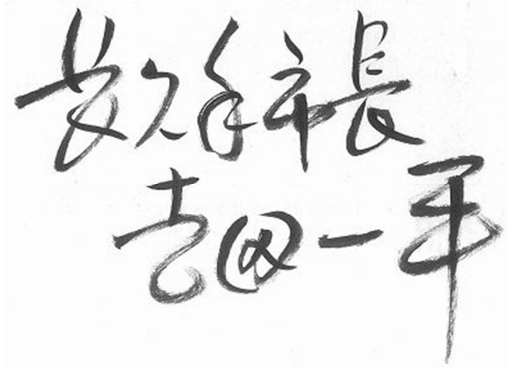 長久手市長
吉田一平